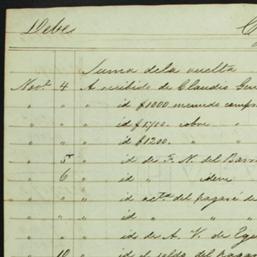 Debe C
Suma dela vuelta
Nov.e 4 " A recibido de Claudio
" " " id $1000 menudo
" " " id $1700. cobre " "
" " " id $1200. " "
" 5 " id de F. N. del
" 6 " id " idem "
" " " id " del pagaré
" " " id " " "
" " " id de A. V. de
" 10 " id el saldo del